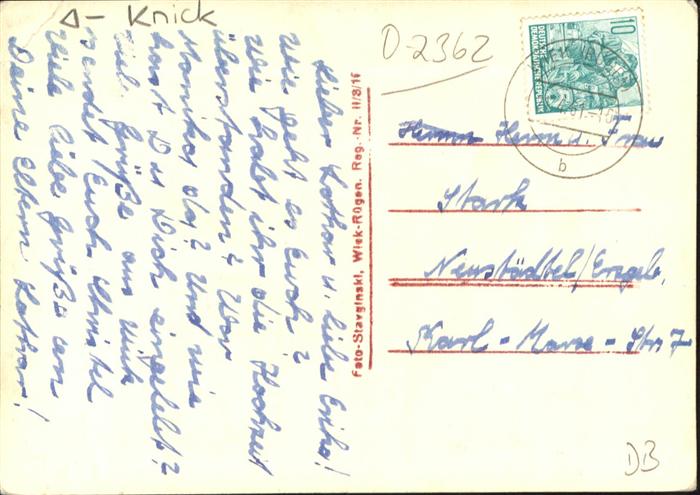 Δ- Knick
D-2362
10
DEUTSCHE
DEMOKRATISCHE REPUBLIK
b
Lieber Lothar u. liebe Erika!
Wie geht es Euch?
Wie habt ihr die Hochzeit
überstanden? War
Monika da? Und wie
hast Du Dich eingelebt?
Viele Grüße aus Wiek
sendet Euch Christel
Viele liebe Grüße an
Deine Eltern Lothar!
Foto-Stavginski, Wiek-Rügen. Reg.-Nr. II/8/11
Herrn u. Frau
Stark
Neustädtel/Erzgeb.
Karl-Marx-Str. 7
DB